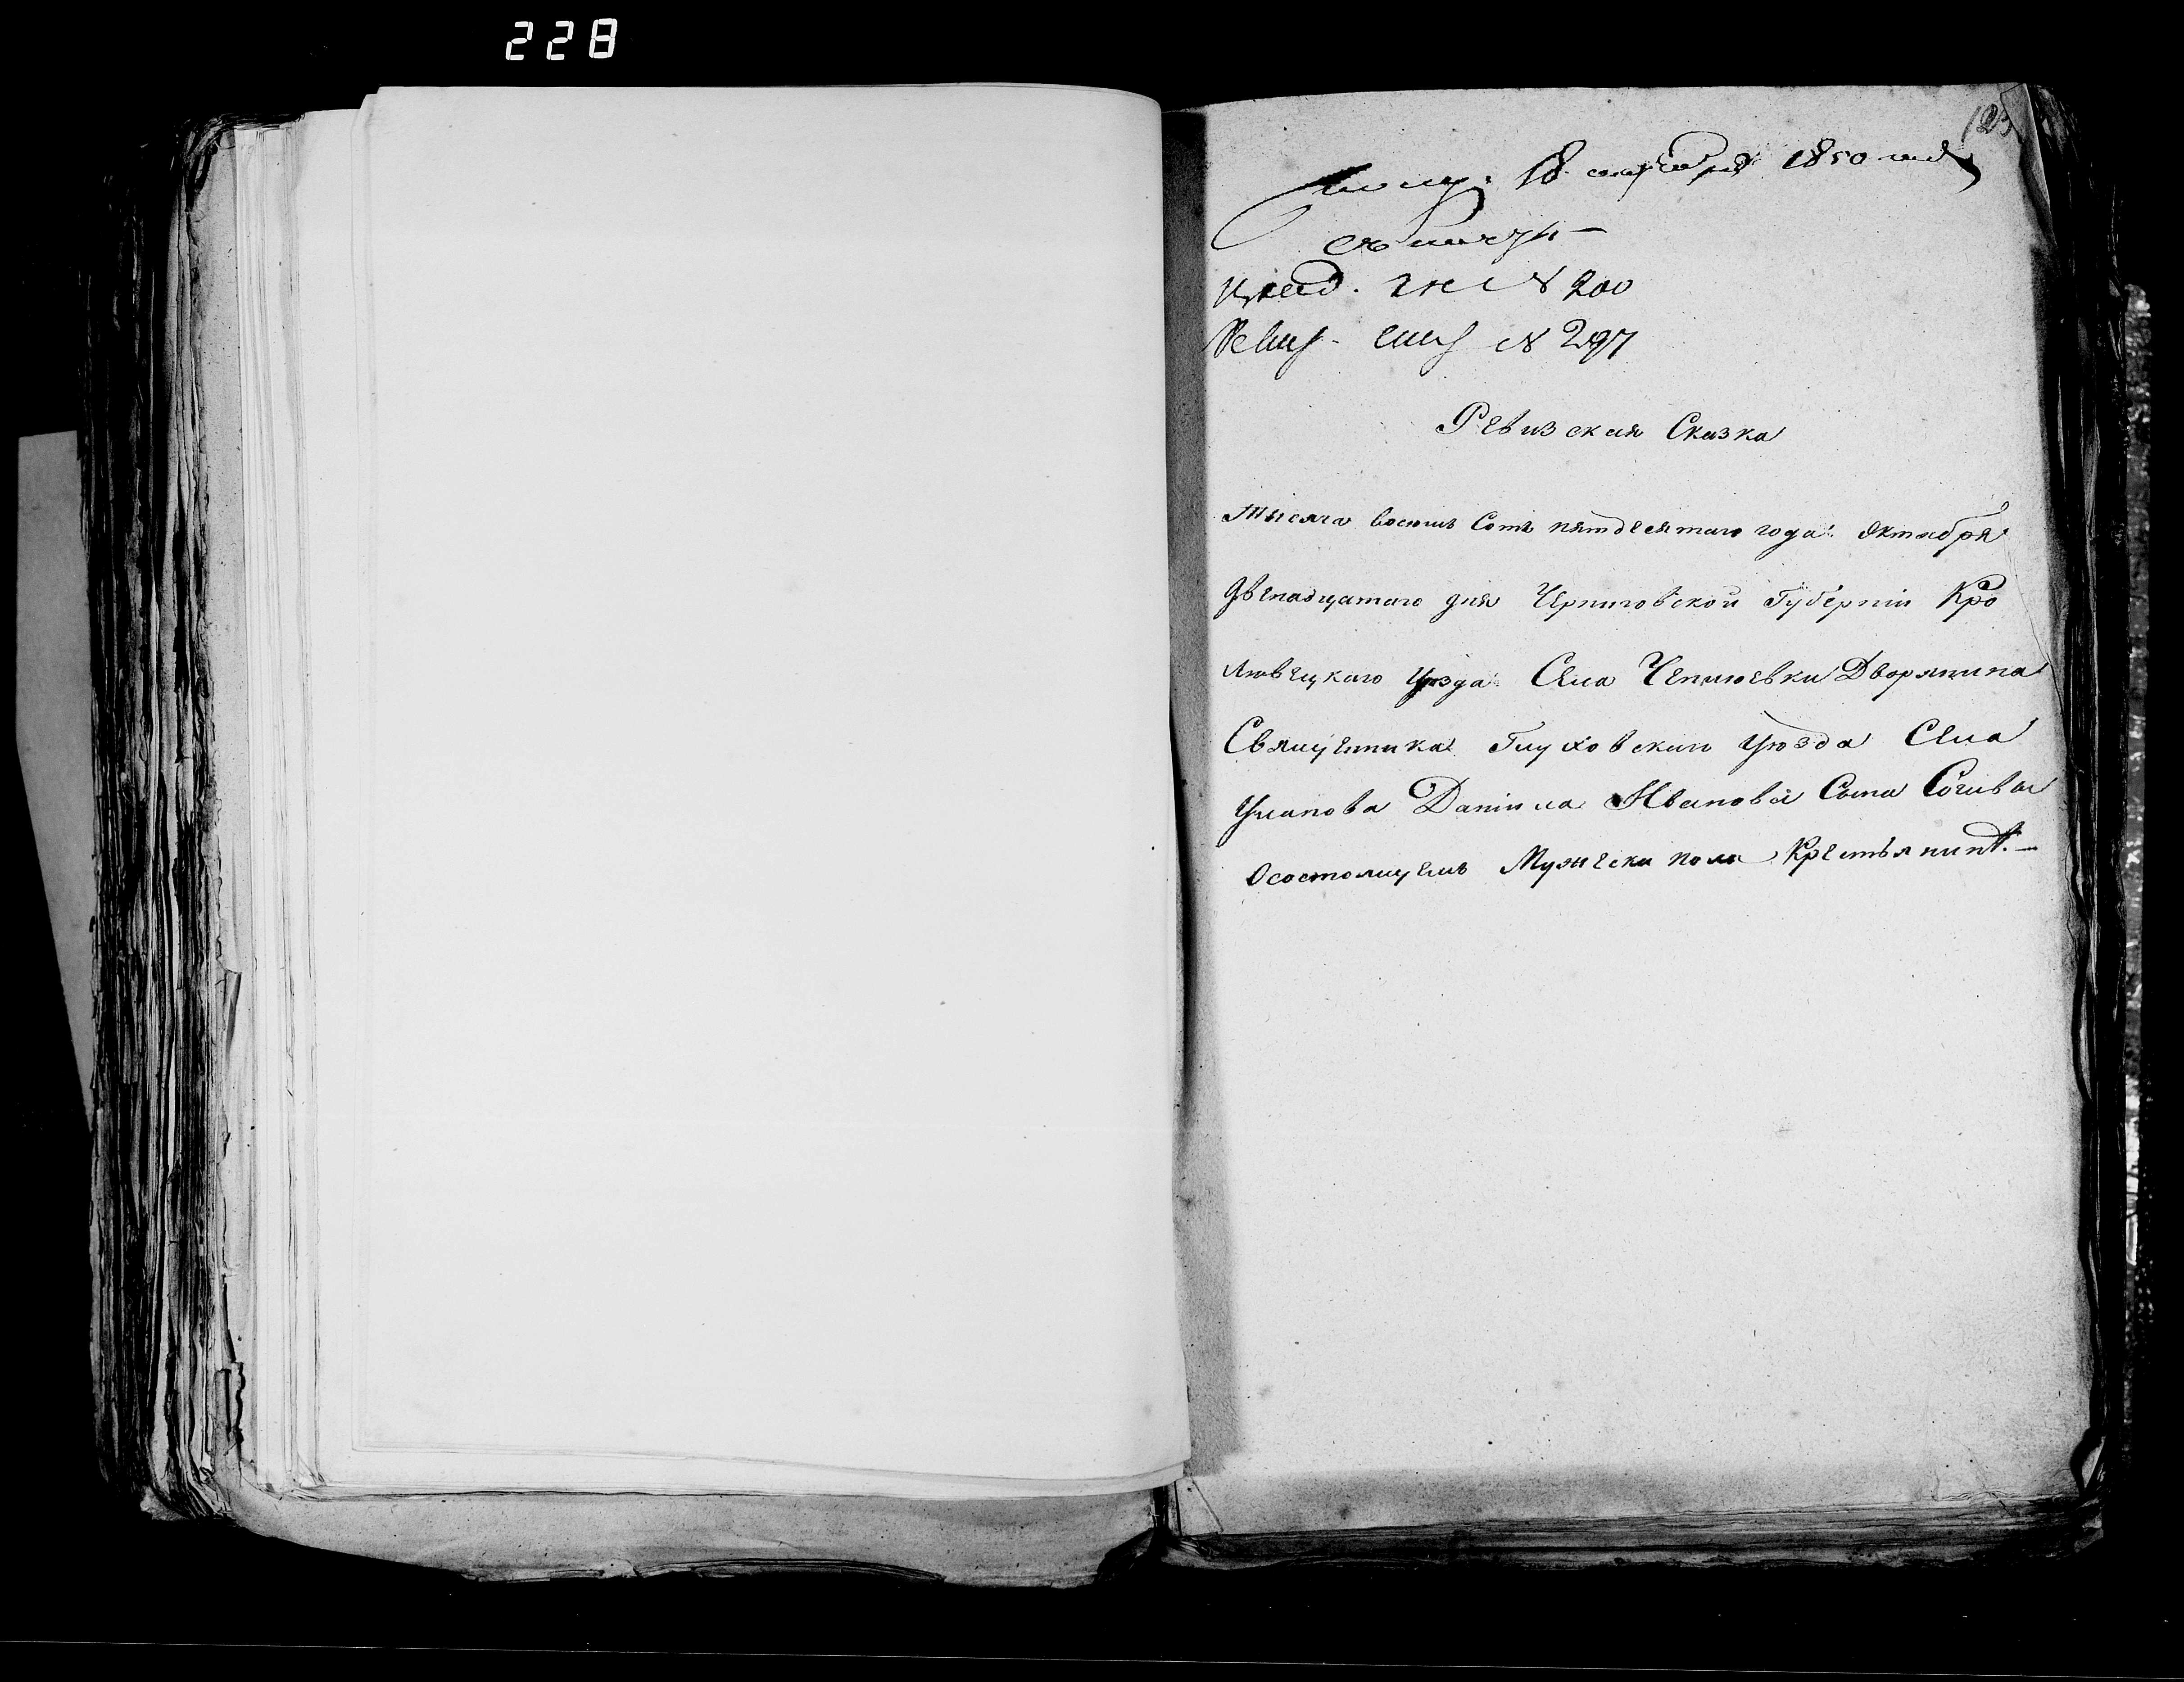 228
125
Получ. 18 октября 1850 года
№ 200
Ревиз. № 297
Ревизская Сказка
Тысяча восемь Сотъ пятдесятаго года: Октября
двенадцатаго дня Черниговской Губерніи Кро
лювецкаго уѣзда: Села Чеплюевки Дворянина
Священника Глуховскаго уѣзда Села
Уланова Даніила Иванова Сына Сочивы
Осостоящемъ Мужеска пола Крестьянинѣ.—